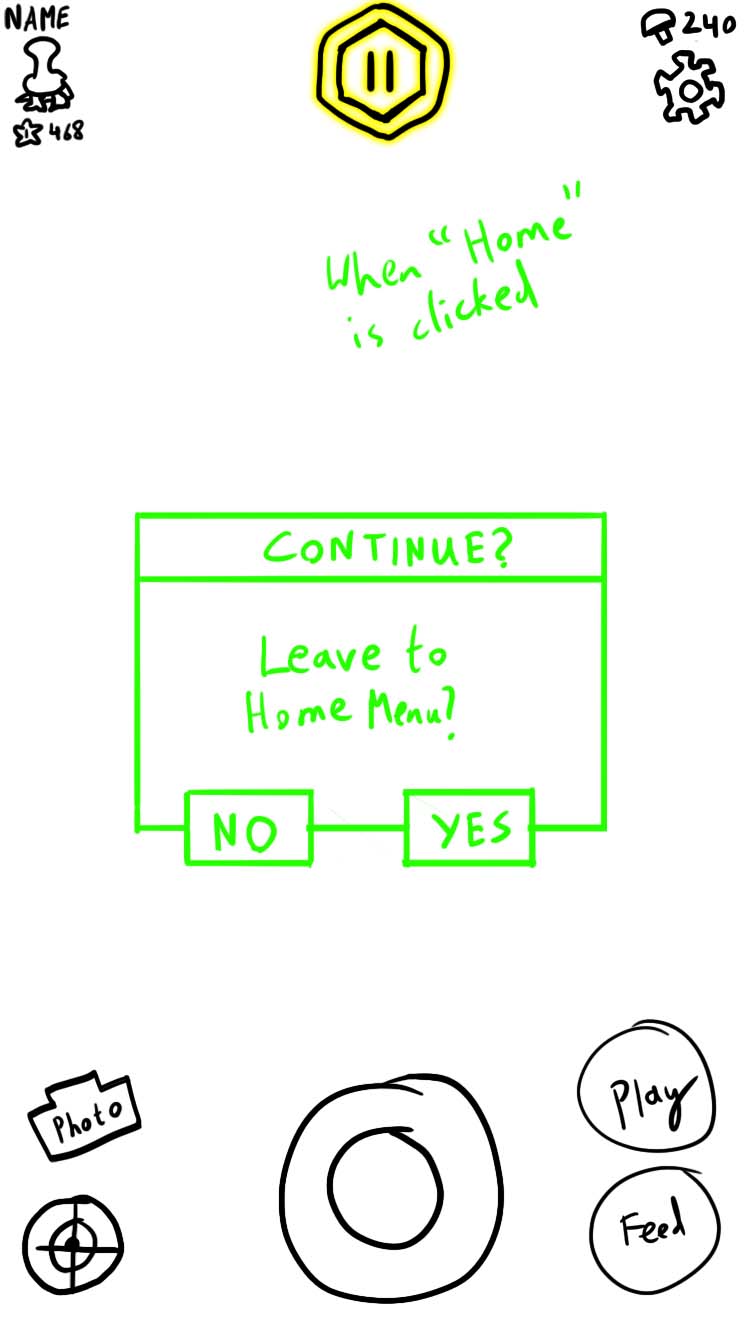 NAME
468
240
When "Home"
is clicked
CONTINUE?
Leave to
Home Menu?
NO
YES
Photo
Play
Feed